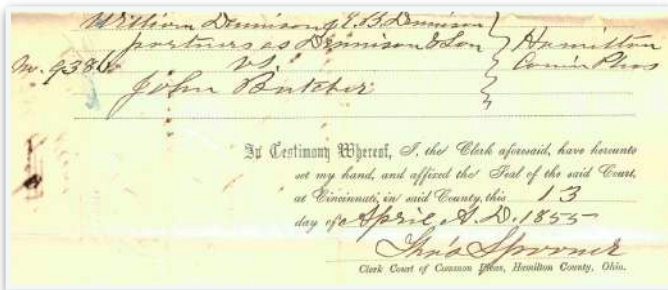 William Dennison & E. B. Dennison
partners as Dennison & Son } Hamilton
No. 9386 vs. } Comin Pleas
John Butcher
In Testimony Whereof, I, the Clerk aforesaid, have hereunto
set my hand, and affixed the Seal of the said Court,
at Cincinnati, in said County, this 13
day of April, A.D. 1855
Tho's Spooner
Clerk Court of Common Pleas, Hamilton County, Ohio.